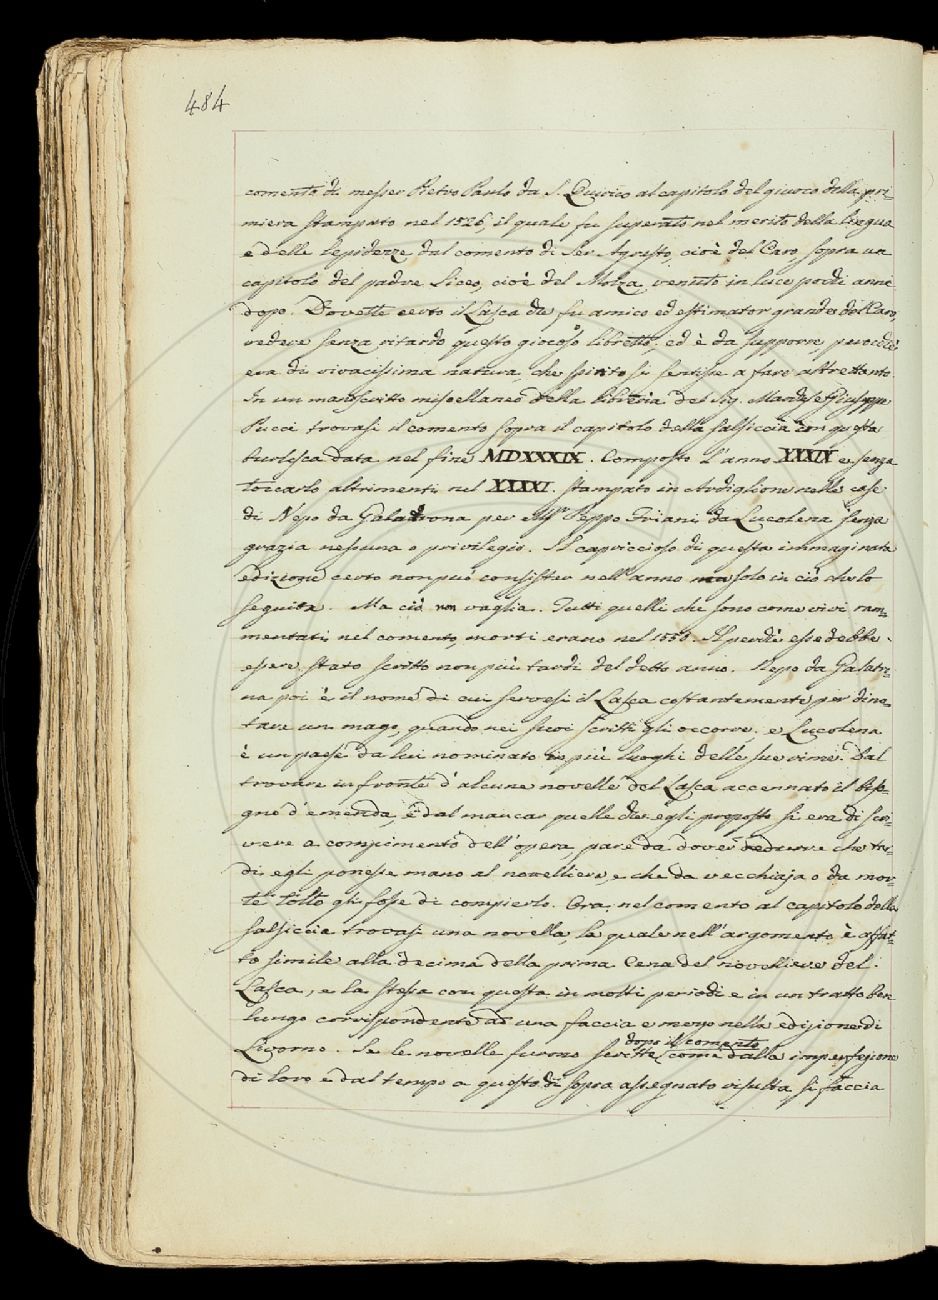 484
comento di messer Pietro Paulo da S. Quirico al capitolo del giuoco della pri-
miera stampato nel 1526, il quale fu superato nel merito della lingua
e delle lepidezze dal comento di Ser Agresto, cioè del Caro, sopra un
capitolo del padre Siceo, cioè del Molza, venuto in luce pochi anni
dopo. Dovette certo il Lasca che fu amico ed estimator grande del Caro,
vedere senza ritardo questo giocoso libretto; ed è da supporre, perocchè
era di vivacissima natura, che spirito si sentisse a fare altrettanto.
In un manoscritto miscellaneo della libreria del Sig. March.se Giuseppe
Pucci trovasi il comento sopra il capitolo della salsiccia con questa
burlesca data nel fine MDXXXIX. Composto l'anno XXXIX e senza
toccarlo altrimenti nel XXXXI. stampato in Avdiglione nelle case
di Nepo da Galatrona per M.r Peppo Friani da Lucolena senza
grazia nessuna o privilegio. Il capriccioso di questa immaginata
edizione certo non può consister nell'anno ma solo in ciò che lo
seguita. Ma ciò non vaglia. Tutti quelli che sono come vivi ram-
mentati nel comento, morti erano nel 1550. Il perchè esse debbe
essere stato scritto non più tardi del detto anno. Nepo da Galatro-
na poi è il nome di cui servesi il Lasca costantemente per dino-
tare un mago, quando nei suoi scritti gli occorre; e Lucolena
è un paese da lui nominato in più luoghi delle sue rime. Dal
trovare in fronte d'alcune novelle del Lasca accennato il biso-
gno d'emenda, e dal mancar quelle che egli proposto si era di scri-
vere a compimento dell'opera, pare da dover dedurre che tar-
di egli ponesse mano al novelliere, e che da vecchiaja o da mor-
te tolto gli fosse di compierlo. Ora nel comento al capitolo della
salsiccia trovasi una novella, la quale nell'argomento è affat-
to simile alla decima della prima Cena del novelliere del
Lasca, e la stessa con questa in molti periodi e in un tratto ben
lungo corrispondente ad una faccia e mezzo nella edizione di
dopo il comento
Livorno. Se le novelle furono scritte come dalla imperfezione
di loro e dal tempo a questo di sopra assegnato risulta, si faccia